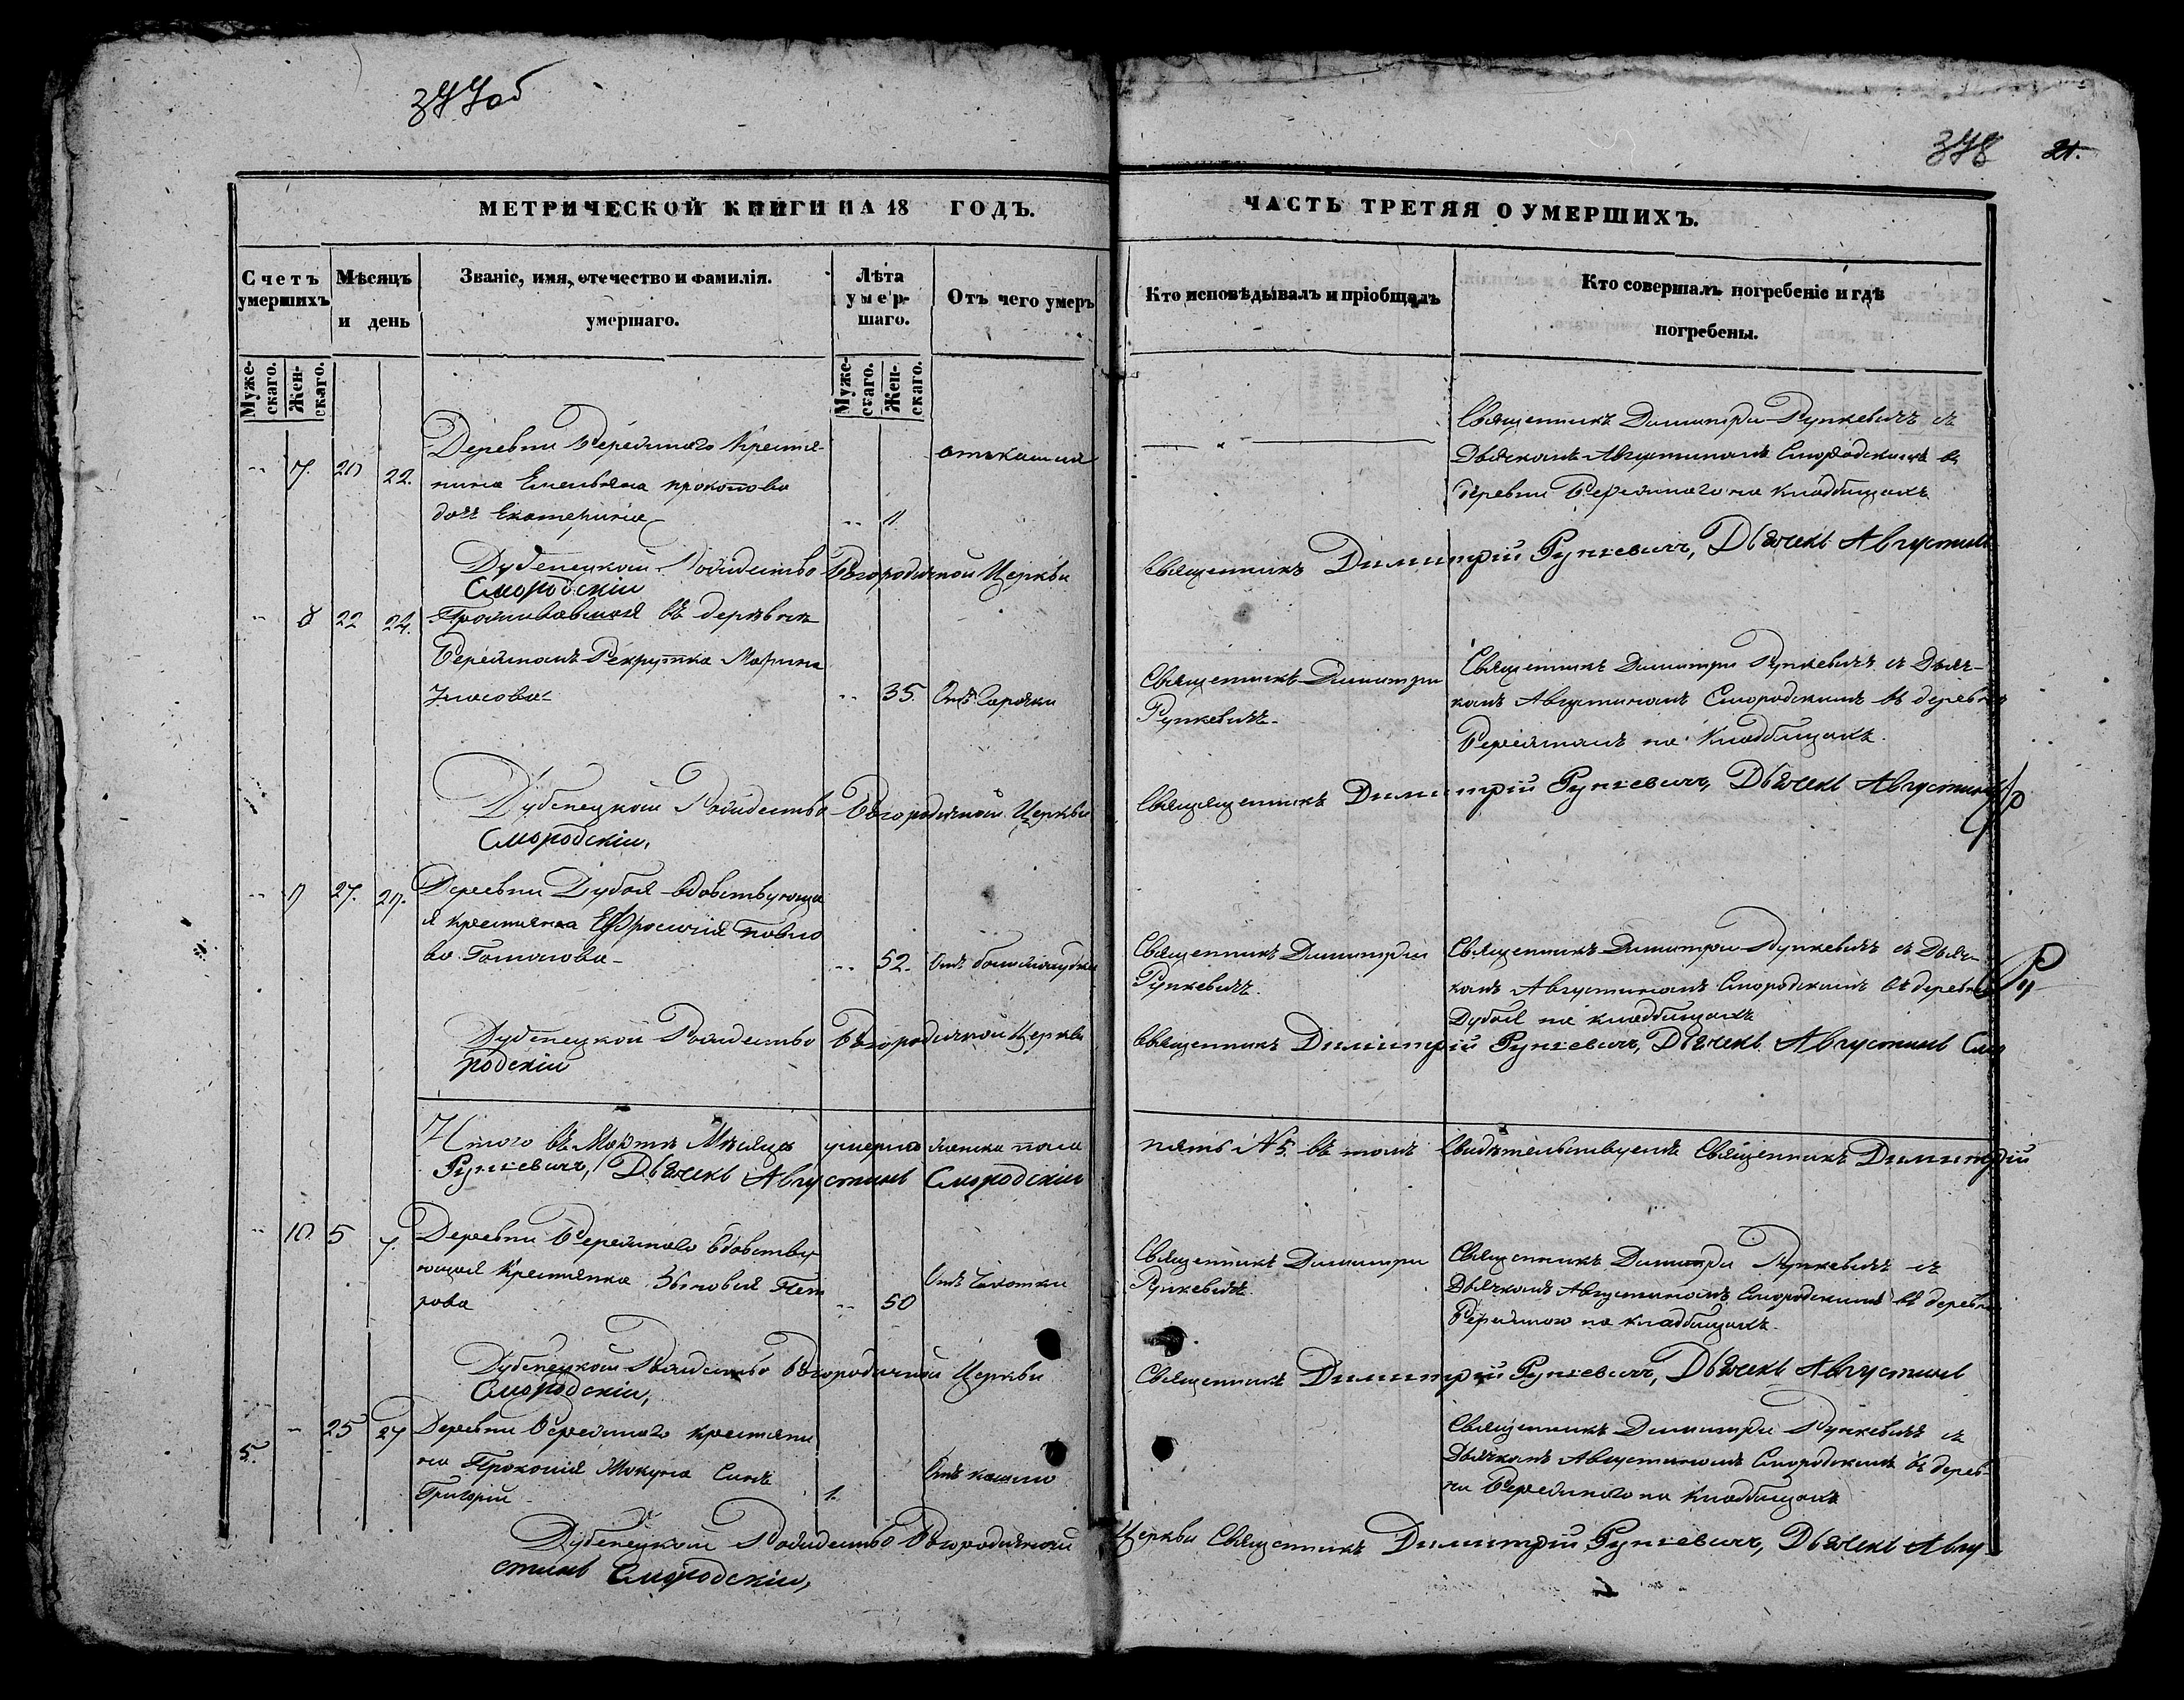 377об
378 21.
МЕТРИЧЕСКОЙ КНИГИ НА 18 ГОДЪ.
ЧАСТЬ ТРЕТЯЯ О УМЕРШИХЪ.
Счетъ умершихъ
Мѣсяцъ и день
Званіе, имя, отечество и фамилія.
умершаго.
Лѣта умер-
шаго.
Отъ чего умеръ
Кто исповѣдывалъ и пріобщалъ
Кто совершалъ погребеніе и гдѣ
погребены.
Муже-
скаго.
Жен-
скаго.
Муже-
скаго.
Жен-
скаго.
7. 20 22.
Деревни Бережнаго Крестья-
нина Емельяна прокопова
дочь Екатерина
отъ кашля
Священникъ Димитри Рункевичъ съ
Дьячкомъ Августиномъ Смородскимъ въ
деревни Бережнаго на кладбищахъ
Дубенецкой Рождество Богородичной Церкви
Священникъ Димитрій Рункевичъ, Дьячекъ Августинъ
Смородскій
8 22 24.
Проживавшая въ деревни
Бережномъ Рекрутка Марина
35. Отъ Горячки
Священникъ Димитри
Рункевичъ
Священникъ Димитри Рункевичъ съ Дьяч-
комъ Августиномъ Смородскимъ въ деревни
Бережномъ на Кладбищахъ
Дубенецкой Рождество Богородичной Церкви
Священникъ Димитрій Рункевичъ, Дьячекъ Августинъ
Смородскій,
9 27. 29.
Деревни Дубоя вдовствующа
я крестянка Ефросинія Павло
ва
52.
Священникъ Димитрій
Рункевичъ.
Священникъ Димитри Рункевичъ съ Дьяч-
комъ Августиномъ Смородскимъ въ деревни
Дубоя на кладбищахъ
Дубенецкой Рождество Богородичной Церкви
Священникъ Димитрій Рункевичъ, Дьячекъ Августинъ Смо
родскій
Итого въ Мартѣ Мѣсяцѣ умерло женска пола
пять № 5. въ томъ Свидѣтельствуемъ Священникъ Димитрій
Рункевичъ, Дьячекъ Августинъ Смородскій
10 5 7.
Деревни Бережнаго вдовству
ющая Крестянка Зѣновія Пет
рова
50
Отъ Чахотки
Священникъ Димитри
Рункевичъ.
Священникъ Димитри Рункевичъ съ
Дьячкомъ Августиномъ Смородскимъ въ деревни
на кладбищахъ
Дубенецкой Рождество Богородичной Церкви
Священникъ Димитрій Рункевичъ, Дьячекъ Августинъ
Смородскій,
5. 25 27
Деревни Бережнаго крестяни
на Прокопія Сынъ
Григорій
1.
Отъ кашлю
Священникъ Димитри Рункевичъ съ
Дьячкомъ Августиномъ Смородскимъ въ дерев-
ни Бережнаго на Кладбищахъ
Дубенецкой Рождество Богородичной
Церкви Священникъ Димитрій Рункевичъ, Дьячекъ Авгу-
стинъ Смородскій,